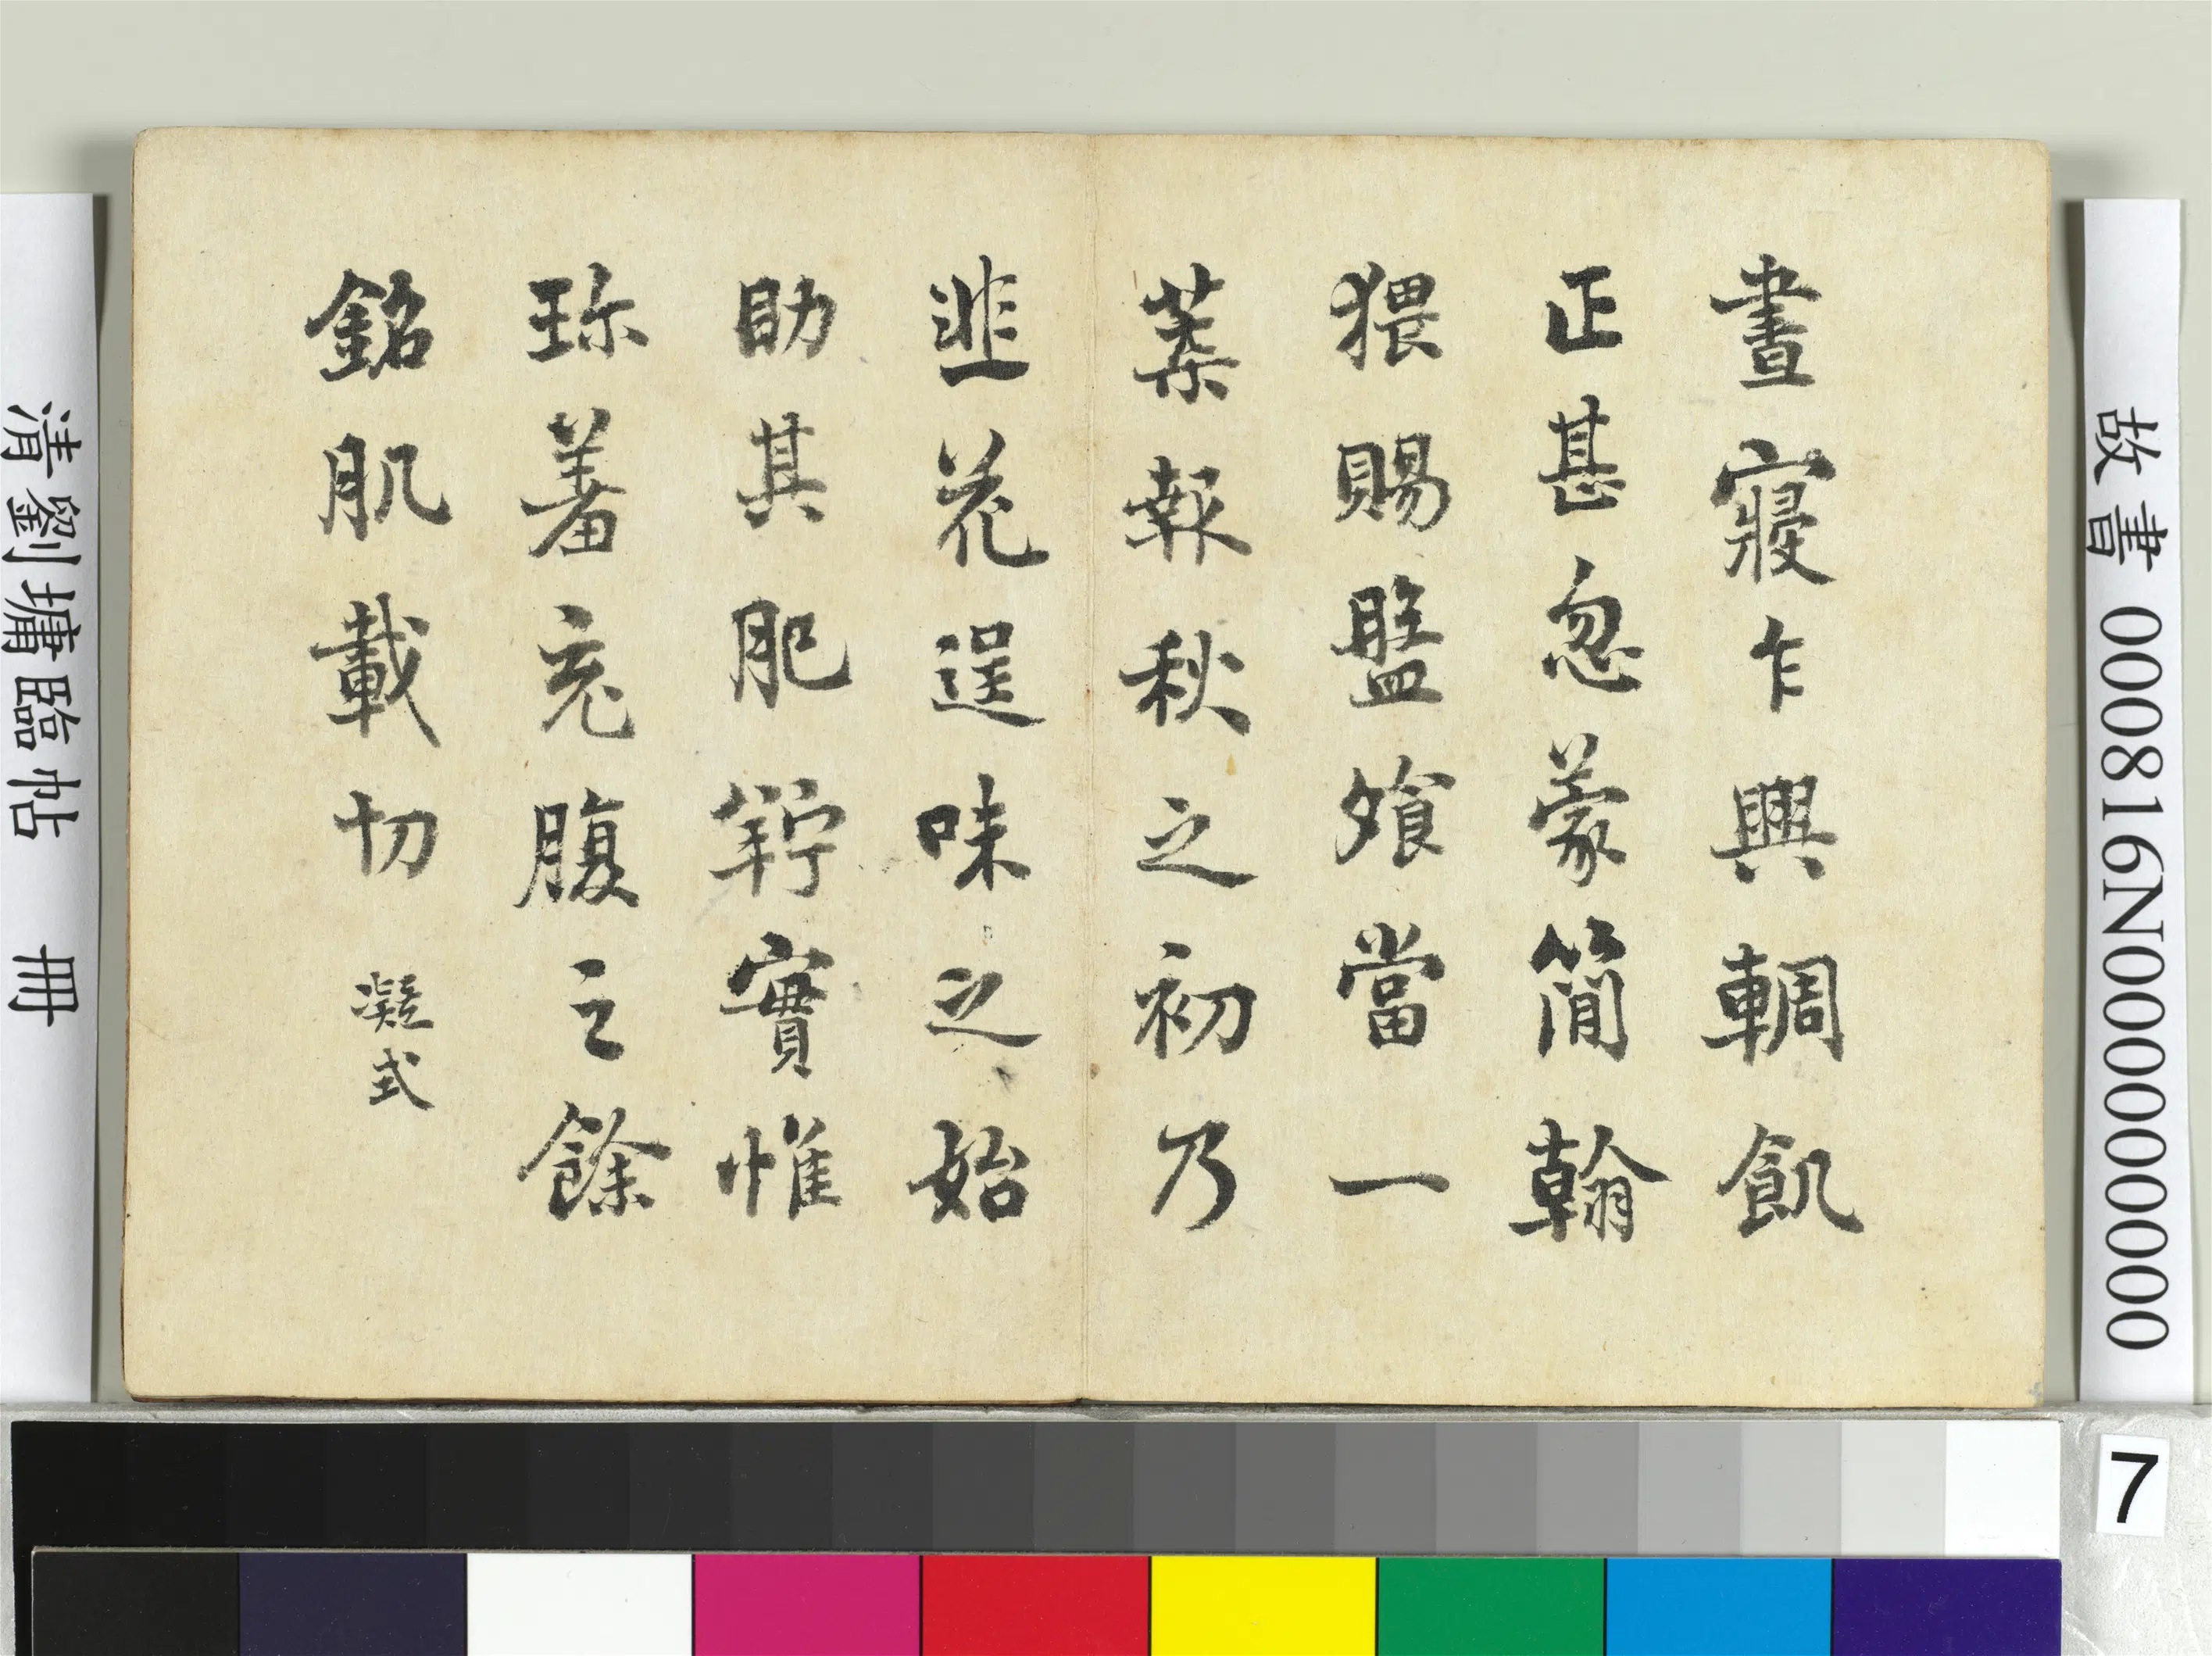 故書 000816N000000000
晝寢乍興輖飢
正甚忽蒙簡翰
猥賜盤飧當一
葉報秋之初乃
韭花逞味之始
助其肥羜實惟
珍羞充腹之餘
銘肌載切 凝式
清劉墉臨帖 冊
7